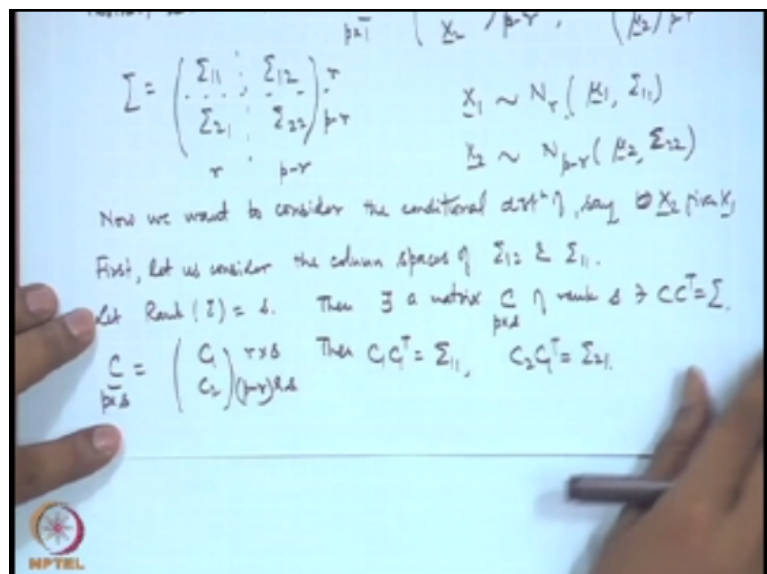 p×1 ( x̲2 ) p-r , ( μ̲2 ) p-r
Σ = ( Σ11 ⋮ Σ12 ) r
( Σ21 ⋮ Σ22 ) p-r
r p-r
x̲1 ~ Nr ( μ̲1, Σ11)
x̲2 ~ Np-r ( μ̲2, Σ22)
Now we want to consider the conditional distⁿ of, say x̲2 given x̲1
First, let us consider the column spaces of Σ12 & Σ11.
Let Rank (Σ) = s. Then ∃ a matrix C of rank s ∋ CCᵀ = Σ.
p×s
C = ( C1 ) r×s Then C1C1ᵀ = Σ11, C2C1ᵀ = Σ21.
p×s ( C2 ) (p-r)×s
NPTEL